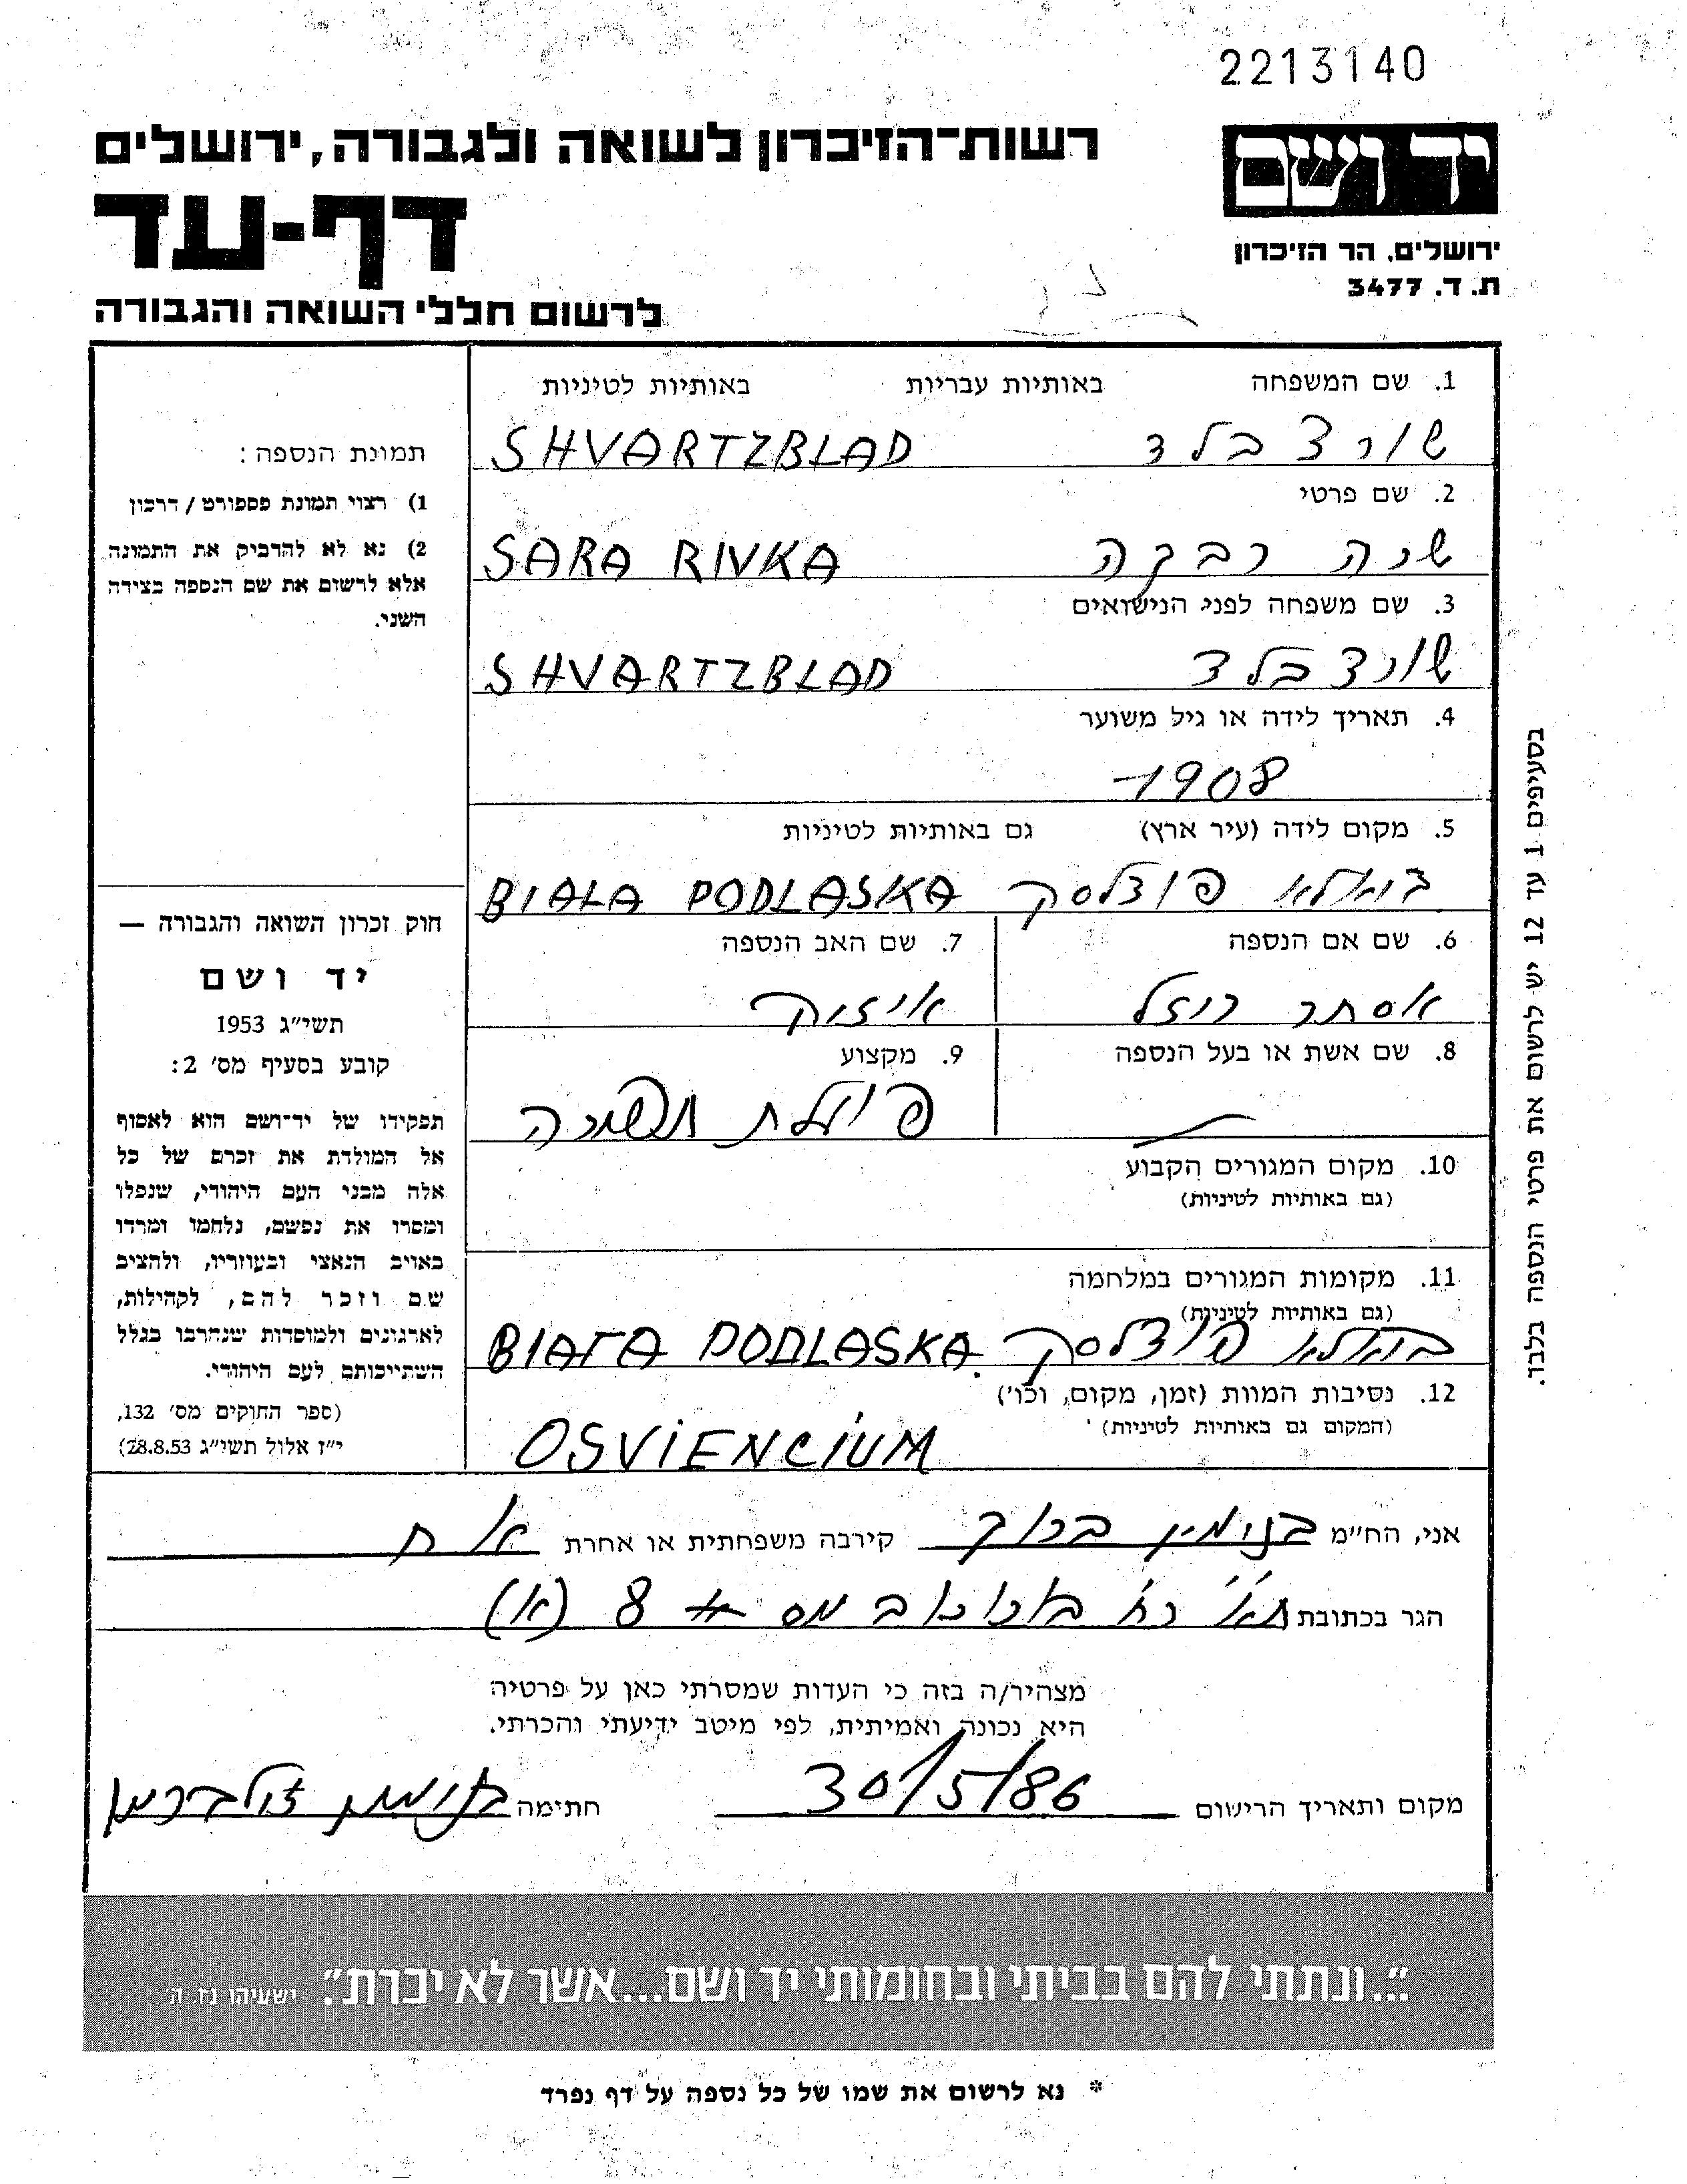 2213140
יד ושם
רשות־הזיכרון לשואה ולגבורה, ירושלים
דף-עד
ירושלים, הר הזיכרון
ת. ד. 3477
לרשום חללי השואה והגבורה
1. שם המשפחה באותיות עבריות באותיות לטיניות
שורצבלד SHVARTZBLAD
2. שם פרטי
שרה רבקה SARA RIVKA
3. שם משפחה לפני הנישואים
שורצבלד SHVARTZBLAD
4. תאריך לידה או גיל משוער
1908
5. מקום לידה (עיר ארץ) גם באותיות לטיניות
ביאלא פודלסק BIAŁA PODLASKA
6. שם אם הנספה 7. שם האב הנספה
אסתר רוזל איזיק
8. שם אשת או בעל הנספה 9. מקצוע
פועלת תפירה
10. מקום המגורים הקבוע
(גם באותיות לטיניות)
11. מקומות המגורים במלחמה
(גם באותיות לטיניות)
ביאלא פודלסק BIAŁA PODLASKA.
12. נסיבות המוות (זמן, מקום, וכו')
(המקום גם באותיות לטיניות)
OSVIENCIUM
תמונת הנספה:
1) רצוי תמונת פספורט / דרכון
2) נא לא להדביק את התמונה
אלא לרשום את שם הנספה בצידה
השני.
חוק זכרון השואה והגבורה —
יד ושם
תשי"ג 1953
קובע בסעיף מס' 2:
תפקידו של יד־ושם הוא לאסוף
אל המולדת את זכרם של כל
אלה מבני העם היהודי, שנפלו
ומסרו את נפשם, נלחמו ומרדו
באויב הנאצי ובעוזריו, ולהציב
שם וזכר להם, לקהילות,
לארגונים ולמוסדות שנחרבו בגלל
השתייכותם לעם היהודי.
(ספר החוקים מס' 132,
י"ז אלול תשי"ג 28.8.53)
בסעיפים 1 עד 12 יש לרשום את פרטי הנספה בלבד.
אני, הח"מ בנימין ברוך קירבה משפחתית או אחרת אח
הגר בכתובת מס 8 (א)
מצהיר/ה בזה כי העדות שמסרתי כאן על פרטיה
היא נכונה ואמיתית, לפי מיטב ידיעתי והכרתי.
מקום ותאריך הרישום 30/5/86 חתימה בנימין זילברמן
"...ונתתי להם בביתי ובחומותי יד ושם...אשר לא יכרת". ישעיהו נו ה
* נא לרשום את שמו של כל נספה על דף נפרד